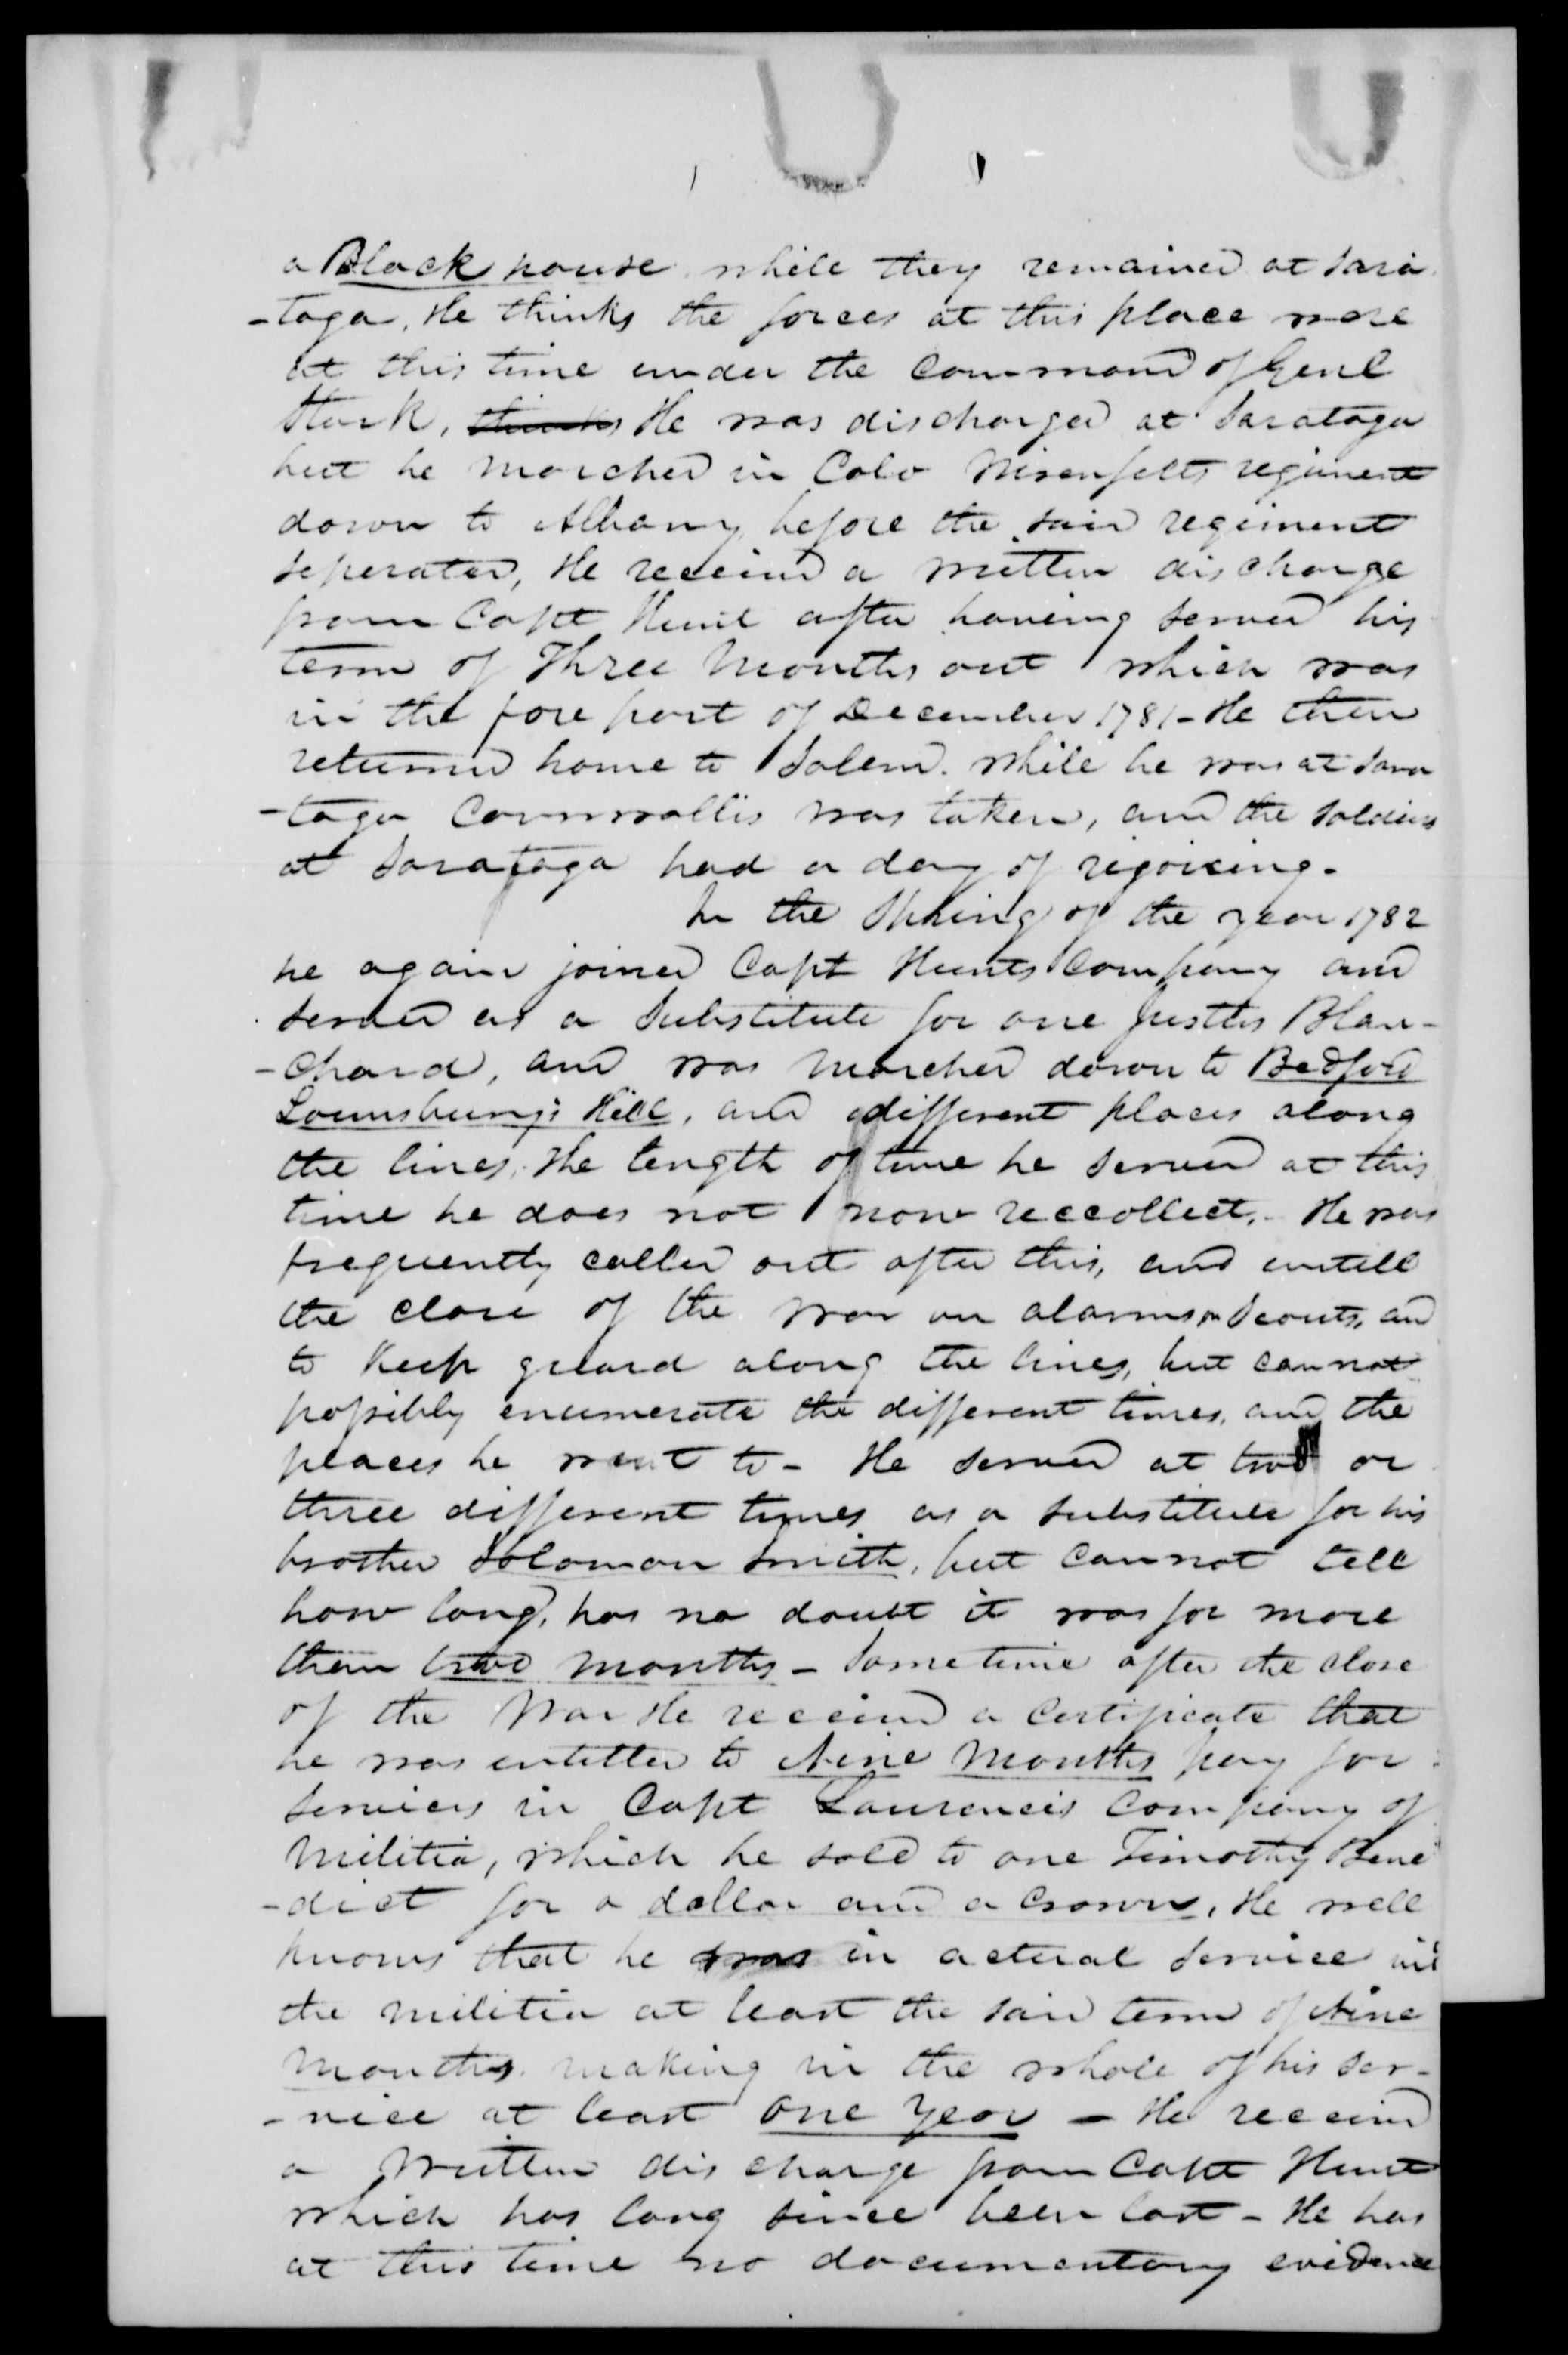 a Block house while they remained at Sara
-toga, He thinks the forces at this place were
at this time under the command of Genl
Stark, thinks He was discharged at Saratoga
but he marched in Colo Wisenfelts regiment
down to Albany before the said regiment
seperated, He received a written discharge
from Capt Hunt after having served his
term of Three Months out which was
in the fore part of December 1781 - He then
returned home to Salem. While he was at Sara
-toga Cornwallis was taken, and the soldiers
at Saratoga had a day of rejoicing.
In the Spring of the year 1782
he again joined Capt Hunts Company and
served as a Substitute for one Justus Blan-
-chard, and was marched down to Bedford
Lounsbury's Hill, and different places along
the lines, the length of time he served at this
time he does not now reccollect, - He was
frequently called out after this, and untill
the close of the War on alarms, Scouts, and
to keep guard along the lines, but cannot
possibly enumerate the different times, and the
places he went to - He served at two or
three different times as a substitute for his
brother Solomon Smith, but cannot tell
how long, has no doubt it was for more
then two months - Sometime after the close
of the War He received a Certificate that
he was entitled to Nine Months pay for
services in Capt Laurences Company of
Militia, which he sold to one Timothy Bene
-dict for a dollar and a Crown, He well
knows that he was in actual service in
the militia at least the said term of Nine
Months making in the whole of his ser-
-vice at least One Year - He received
a written discharge from Capt Hunt
which has long since been lost - He has
at this time no documentary evidence